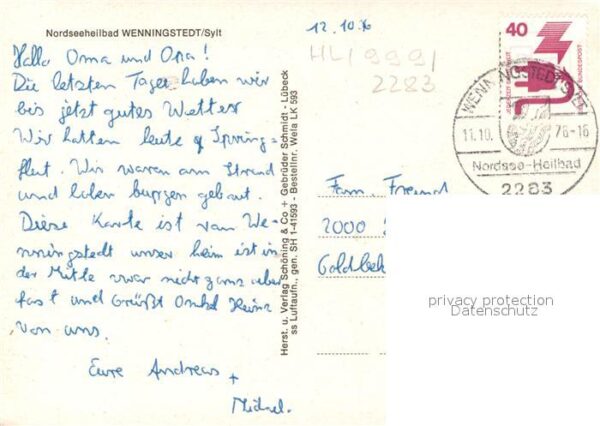 Nordseeheilbad WENNINGSTEDT/Sylt
12.10.76
HL/999/
2283
Hallo Oma und Opa!
Die letzten Tage haben wir
bis jetzt gutes Wetter
Wir hatten heute Spring-
flut. Wir waren am Strand
und haben burgen gebaut.
Diese Karte ist von We-
nningstedt unser heim ist in
der Mitte zwar nicht ganz aber
fast und Grüßt Onkel Heinz
von uns.
Eure Andreas +
Michael.
Herst. u. Verlag Schöning & Co + Gebrüder Schmidt · Lübeck
ss Luftaufn., gen. SH 1-41593 - Bestellnr. Wela LK 593
40
DEUTSCHE BUNDESPOST
WENNINGSTEDT/SYLT
11.10. 76-16
Nordsee-Heilbad
2283
Fam. Freund
2000
Goldbek
privacy protection
Datenschutz